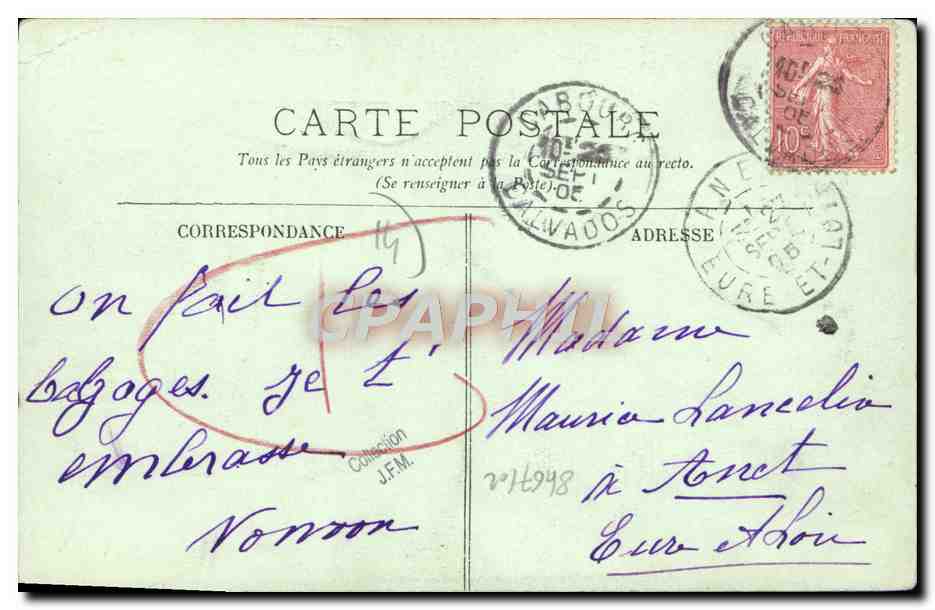 CARTE POSTALE
Tous les Pays étrangers n'acceptent pas la Correspondance au recto.
(Se renseigner à la Poste).
REPUBLIQUE FRANÇAISE
10c
CABOURG
10E 23
SEPT
05
CALVADOS
ANET
SEPT
05
EURE-ET-LOIR
CORRESPONDANCE
14
on fait les
bagages. je t'
embrasse
ADRESSE
Madame
Maurice Lancelin
à Anet
Eure et Loir
CPAPHIL
Collection
J.F.M.